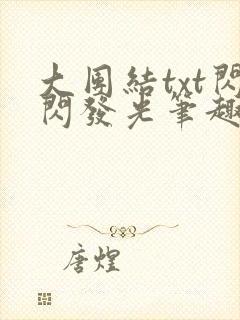 大團結txt閃
閃發光筆趣
唐煌